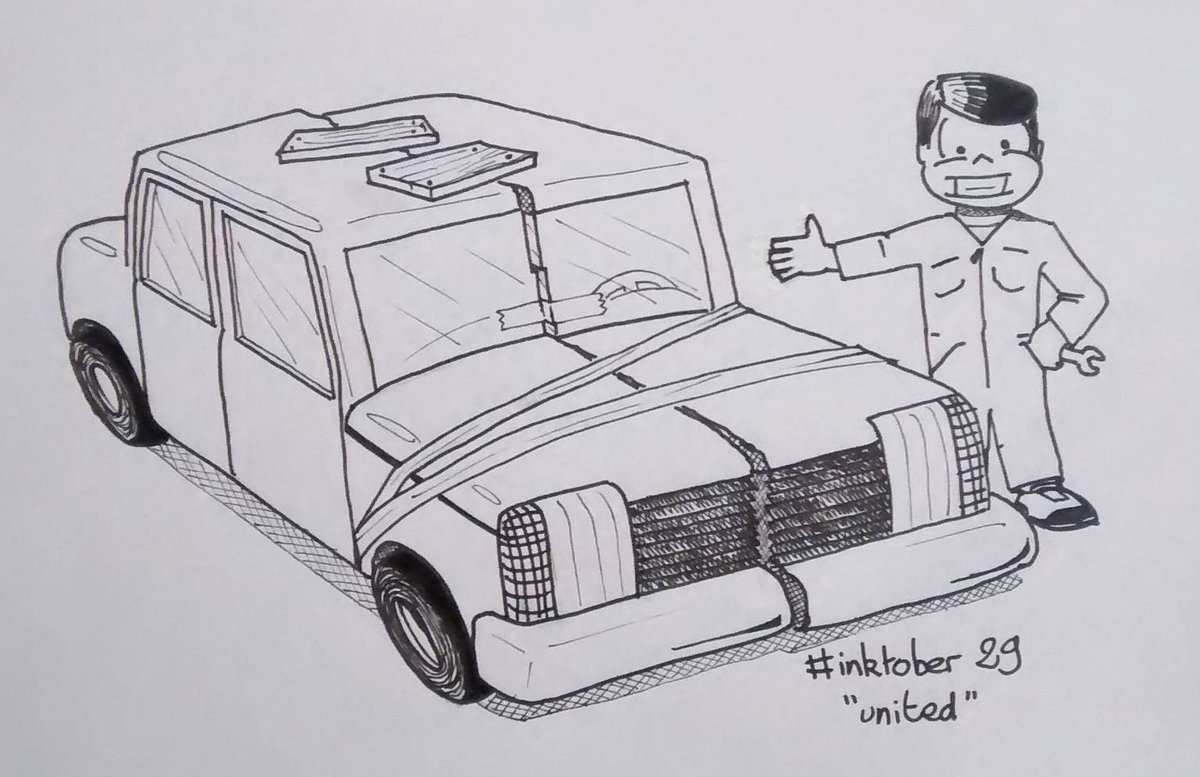 #inktober 29
"united"